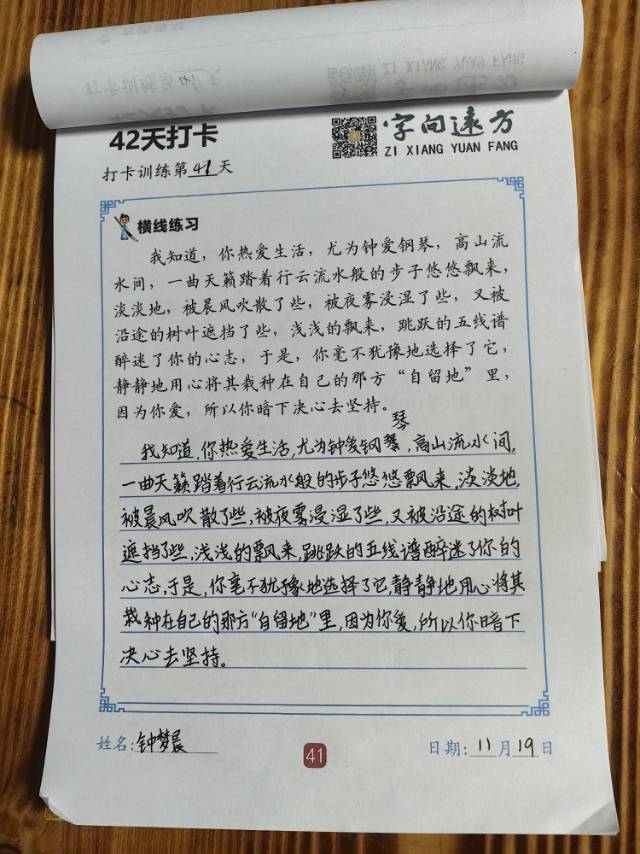 42天打卡
字向速方
ZI XIANG YUAN FANG
打卡训练第41天
横线练习
我知道，你热爱生活，尤为钟爱钢琴，高山流
水间，一曲天籁踏着行云流水般的步子悠悠飘来，
淡淡地，被晨风吹散了些，被夜雾浸湿了些，又被
沿途的树叶遮挡了些，浅浅的飘来，跳跃的五线谱
醉迷了你的心志，于是，你毫不犹豫地选择了它，
静静地用心将其栽种在自己的那方“自留地”里，
因为你爱，所以你暗下决心去坚持。
琴
我知道，你热爱生活，尤为钟爱钢琴，高山流水间，
一曲天籁踏着行云流水般的步子悠悠飘来，淡淡地，
被晨风吹散了些，被夜雾浸湿了些，又被沿途的树叶
遮挡了些，浅浅的飘来，跳跃的五线谱醉迷了你的
心志，于是，你毫不犹豫地选择了它，静静地用心将其
栽种在自己的那方“自留地”里，因为你爱，所以你暗下
决心去坚持。
姓名：钟梦晨
41
日期：11月19日